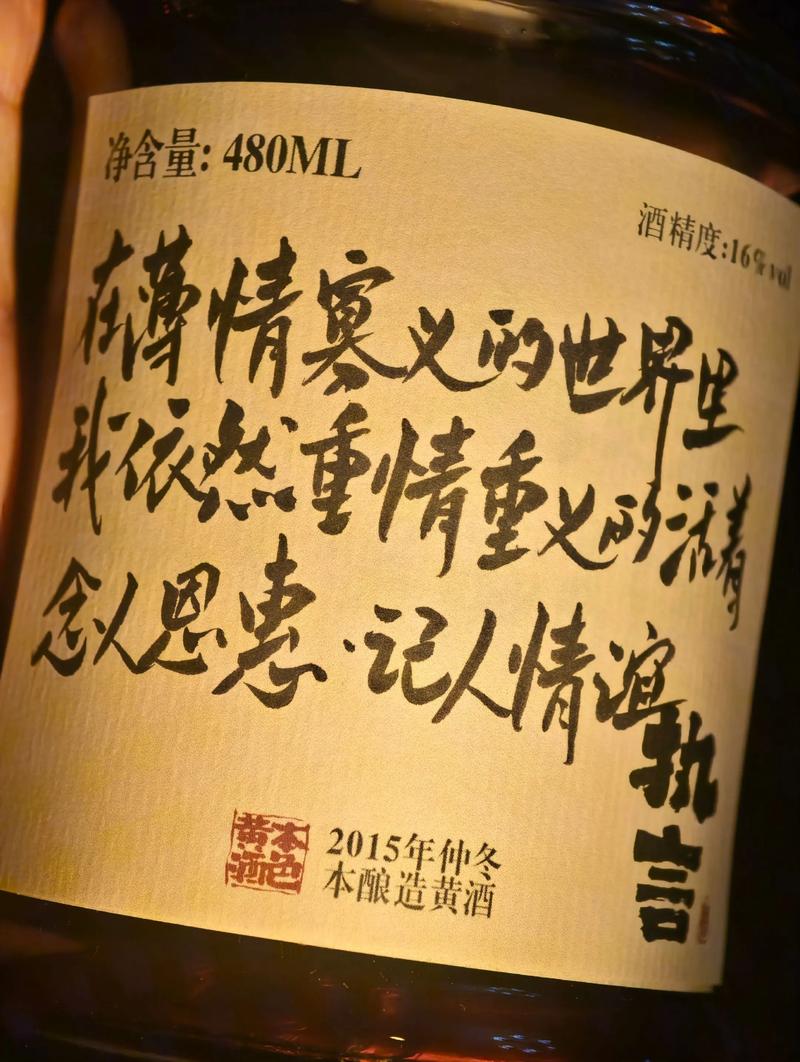 净含量: 480ML
酒精度:16%vol
在薄情寡义的世界里
我依然重情重义的活着
念人恩惠·记人情谊
执言
本色黄酒
2015年仲冬
本酿造黄酒